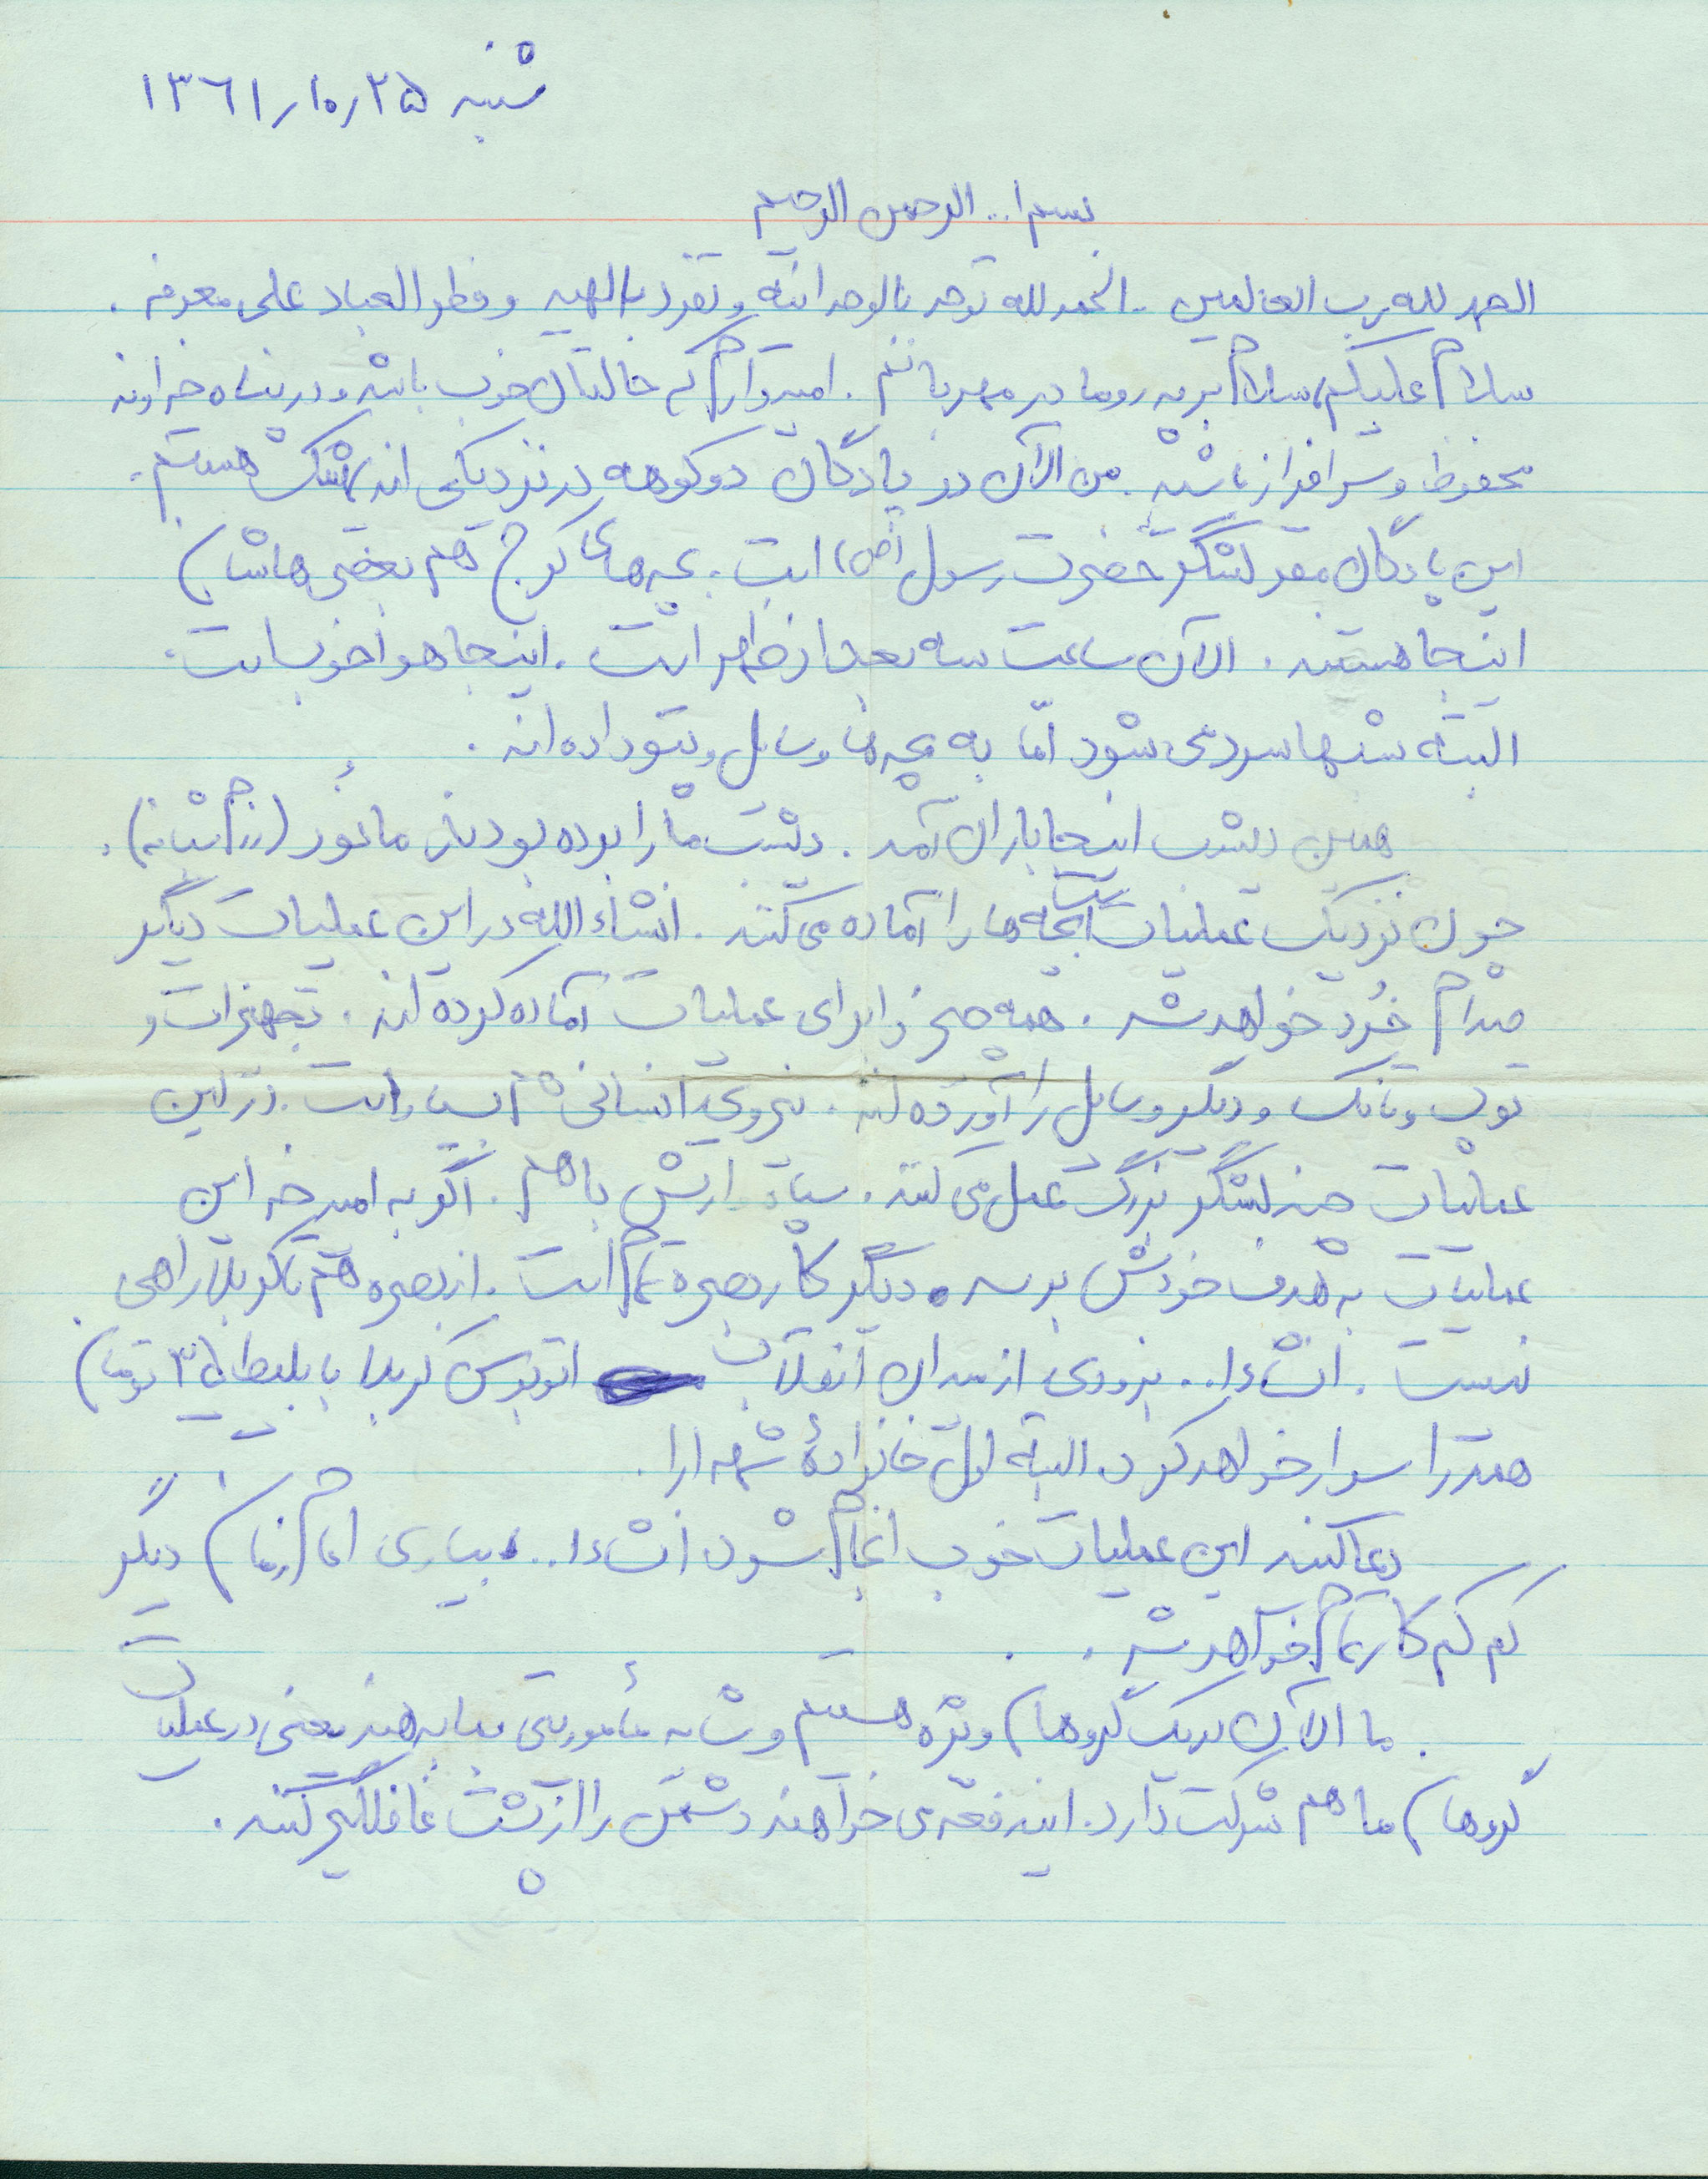 شنبه ۱۳۶۱/۱۰/۲۵
بسم ا... الرحمن الرحیم
الحمد لله رب العالمین . الحمد لله توحد بالوحدانیّه و تفرد بالالهیه و فطر العباد علی معرفه .
سلام علیکم، سلام بر پدر و مادر مهربانم . امیدوارم که حالتان خوب باشد و در پناه خداوند
محفوظ و سرافراز باشید . من الآن در پادگان دوکوهه در نزدیکی اندیمشک هستم .
این پادگان مقر لشگر حضرت رسول (ص) است . بچه‌های کرج هم بعضی هاشان
اینجا هستند . الآن ساعت سه بعد از ظهر است . اینجا هوا خوب است .
البته شبها سرد می شود امّا به بچه ها وسایل و پتو داده اند .
همین دیشب اینجا باران آمد . دیشب ما را برده بودند مانُور (رزم شبانه) .
چون نزدیک عملیات است بچه ها را آماده می کنند . انشاء الله در این عملیات دیگر
صدام خُرد خواهد شد . همه چیز را برای عملیات آماده کرده اند . تجهیزات و
توپ و تانک و دیگر وسایل را آورده اند . نیروی انسانی هم بسیار است . در این
عملیات چند لشگر بزرگ عمل می کنند . سپاه و ارتش با هم . اگر به امید خدا این
عملیات به هدف خودش برسد دیگر کار بصره تمام است . از بصره هم تا کربلا راهی
نیست . انشاء ا... بزودی از میدان انقلاب اتوبوس کربلا با بلیط ۳۵ تومان
همه را سوار خواهد کرد البته اول خانوادهٔ شهدا را .
دعا کنید این عملیات خوب انجام شود انشاء ا... بیاری امام زمان دیگر
کم کم کار تمام خواهد شد .
ما الآن در یک گروهان ویژه هستیم و شاید مأموریتی بما بدهند یعنی در عملیات
گروهان ما هم شرکت دارد . ایندفعه می خواهند دشمن را از پشت غافلگیر کنند .